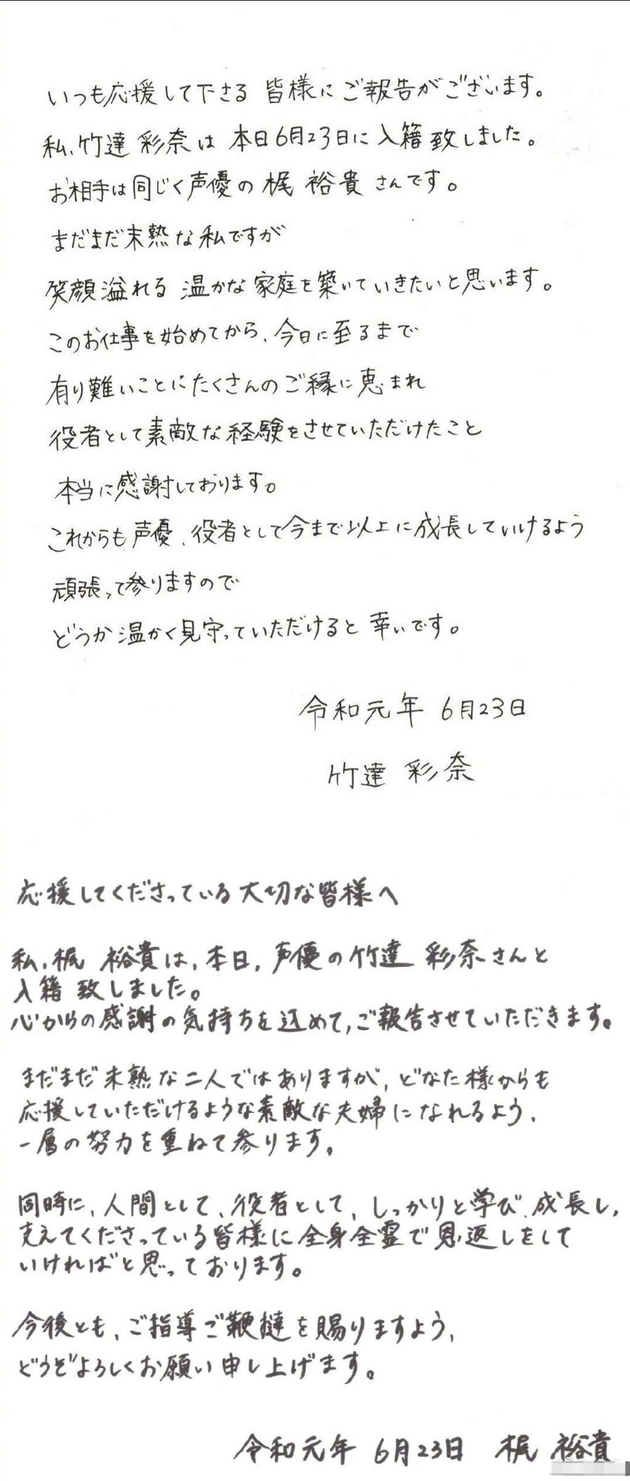 いつも応援して下さる 皆様に ご報告がございます。
私、竹達 彩奈は 本日6月23日に 入籍 致しました。
お相手は同じく声優の 梶 裕貴 さんです。
まだまだ未熟な私ですが
笑顔溢れる 温かな 家庭を築いていきたいと思います。
このお仕事を始めてから、今日に至るまで
有り難いことにたくさんの ご縁に 恵まれ
役者として素敵な経験をさせていただけたこと
本当に感謝しております。
これからも声優、役者として今まで以上に成長していけるよう
頑張って参りますので
どうか 温かく見守っていただけると 幸いです。
令和元年 6月23日
竹達 彩奈
応援してくださっている大切な皆様へ
私、梶 裕貴は、本日、声優の竹達 彩奈さんと
入籍 致しました。
心からの感謝の気持ちを込めて、ご報告させていただきます。
まだまだ未熟な二人ではありますが、どなた様からも
応援していただけるような素敵な夫婦になれるよう、
一層の努力を重ねて参ります。
同時に、人間として、役者として、しっかりと学び、成長し、
支えてくださっている皆様に全身全霊で恩返しをして
いければと思っております。
今後とも、ご指導ご鞭撻を賜りますよう、
どうぞよろしくお願い申し上げます。
令和元年 6月23日 梶 裕貴